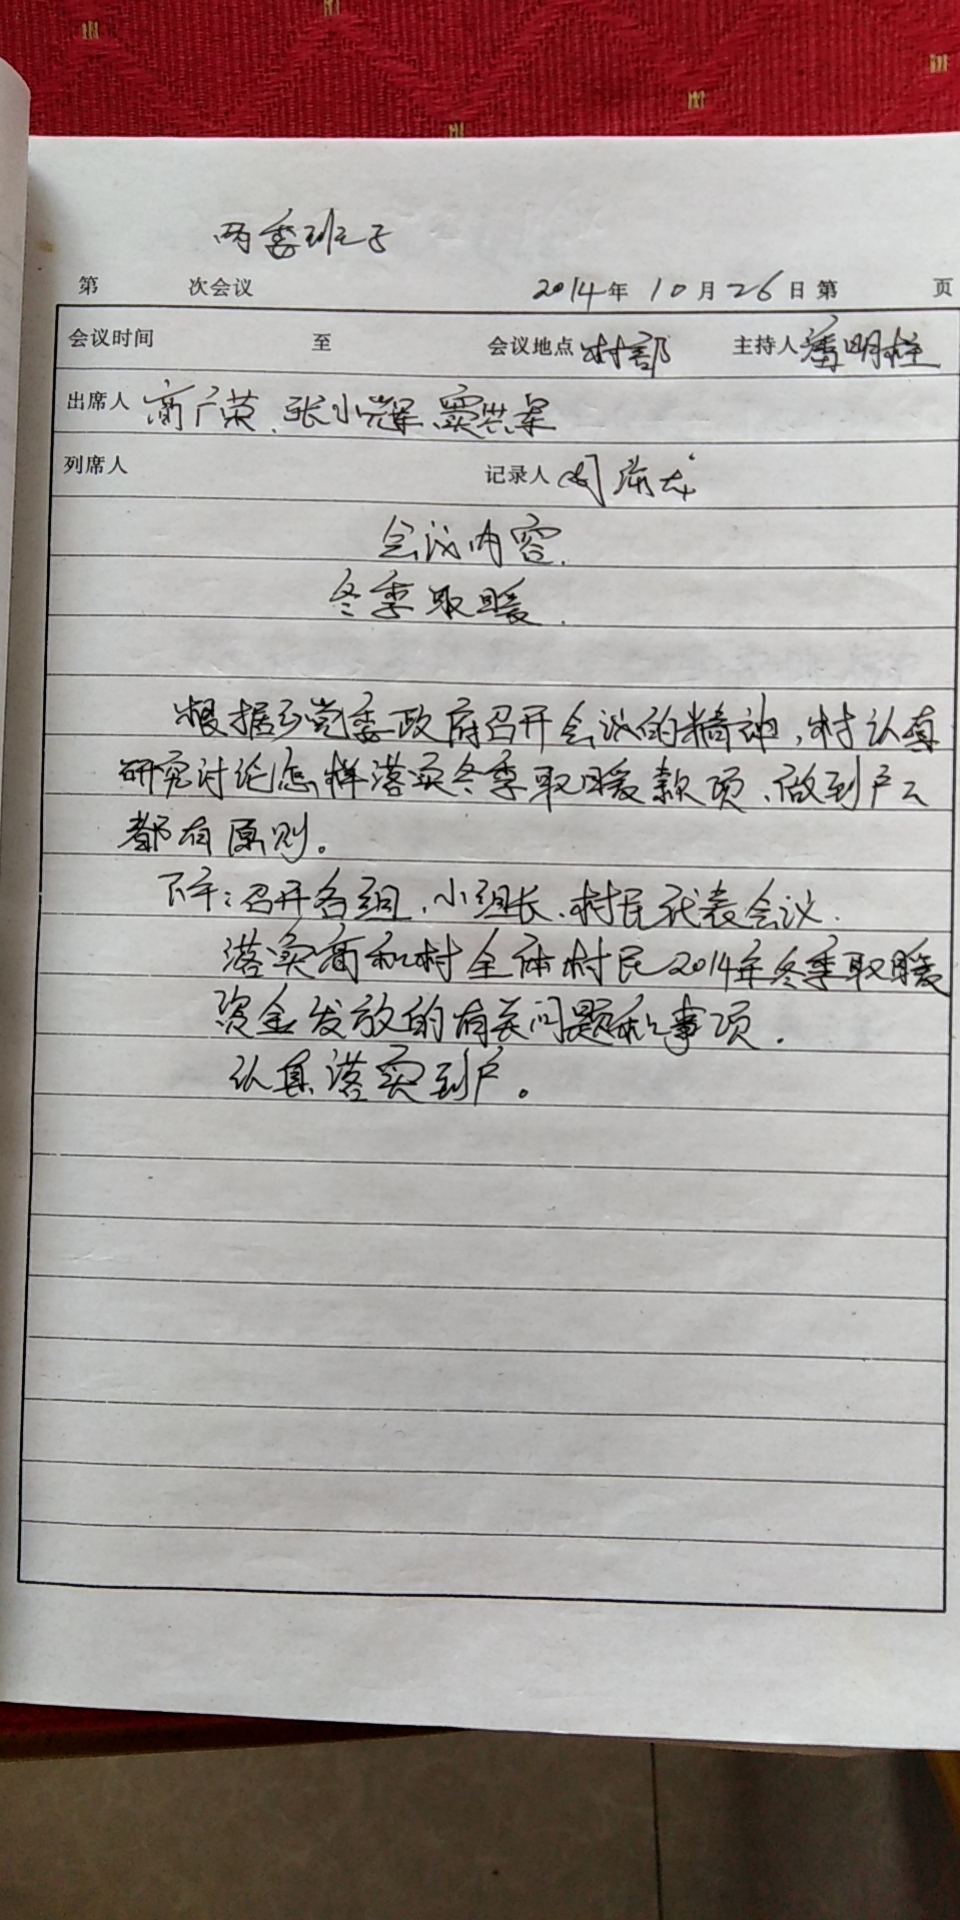 两委班子
第 次会议 2014年10月26日 第 页
会议时间 至 会议地点 村部 主持人 潘明柱
出席人 商广荣、张小辉、窦共军
列席人 记录人 周
会议内容.
冬季取暖.
根据乡党委政府召开会议的精神,村认真
研究讨论怎样落实冬季取暖款项、做到户户
都有原则。
下午:召开各组、小组长、村民代表会议.
落实商和村全体村民2014年冬季取暖
资金发放的有关问题和事项.
认真落实到户。